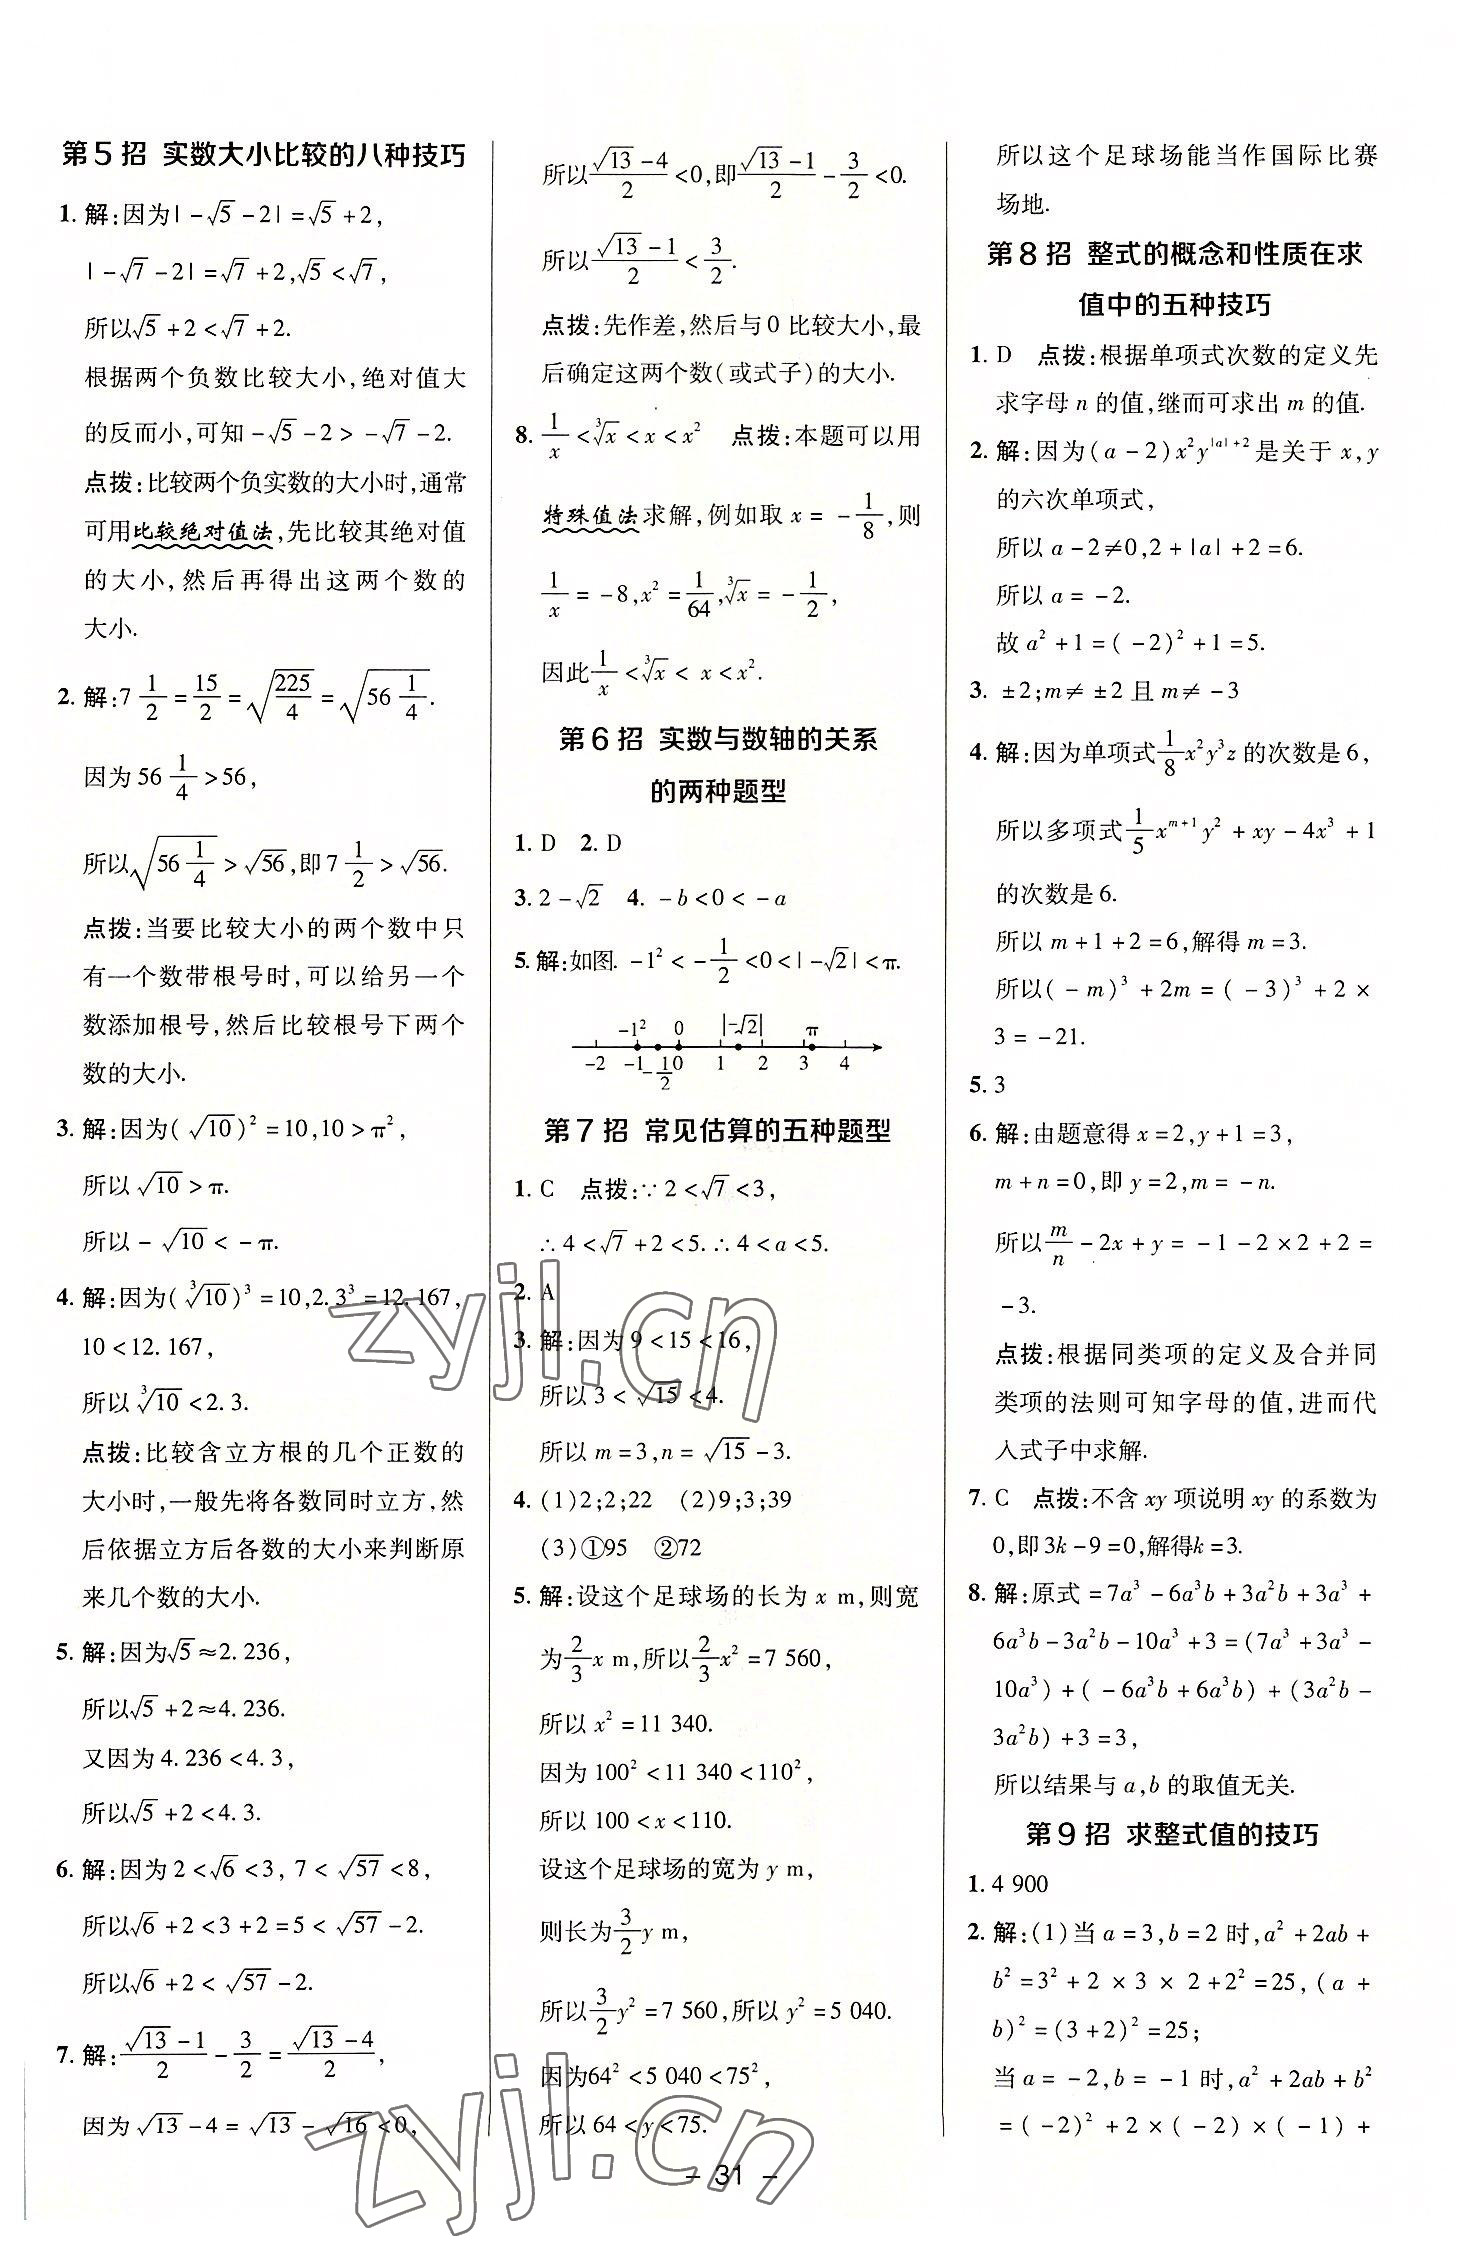 第5招 实数大小比较的八种技巧
1. 解:因为|-√5-2|=√5+2,
|-√7-2|=√7+2,√5<√7,
所以√5+2<√7+2.
根据两个负数比较大小,绝对值大
的反而小,可知-√5-2>-√7-2.
点拨:比较两个负实数的大小时,通常
可用比较绝对值法,先比较其绝对值
的大小,然后再得出这两个数的
大小.
2. 解:7 1/2=15/2=√(225/4)=√(56 1/4).
因为56 1/4>56,
所以√(56 1/4)>√56,即7 1/2>√56.
点拨:当要比较大小的两个数中只
有一个数带根号时,可以给另一个
数添加根号,然后比较根号下两个
数的大小.
3. 解:因为(√10)²=10,10>π²,
所以√10>π.
所以-√10<-π.
4. 解:因为(³√10)³=10,2.3³=12.167,
10<12.167,
所以³√10<2.3.
点拨:比较含立方根的几个正数的
大小时,一般先将各数同时立方,然
后依据立方后各数的大小来判断原
来几个数的大小.
5. 解:因为√5≈2.236,
所以√5+2≈4.236.
又因为4.236<4.3,
所以√5+2<4.3.
6. 解:因为2<√6<3,7<√57<8,
所以√6+2<3+2=5<√57-2.
所以√6+2<√57-2.
7. 解:(√13-1)/2-3/2=(√13-4)/2,
因为√13-4=√13-√16<0,
所以(√13-4)/2<0,即(√13-1)/2-3/2<0.
所以(√13-1)/2<3/2.
点拨:先作差,然后与0比较大小,最
后确定这两个数(或式子)的大小.
8. 1/x<³√x<x<x² 点拨:本题可以用
特殊值法求解,例如取x=-1/8,则
1/x=-8,x²=1/64,³√x=-1/2,
因此1/x<³√x<x<x².
第6招 实数与数轴的关系
的两种题型
1. D 2. D
3. 2-√2 4. -b<0<-a
5. 解:如图. -1²<-1/2<0<|-√2|<π.
-1² 0 |-√2| π
-2 -1 -1/2 0 1 2 3 4
第7招 常见估算的五种题型
1. C 点拨:∵2<√7<3,
∴4<√7+2<5.∴4<a<5.
2. A
3. 解:因为9<15<16,
所以3<√15<4.
所以m=3,n=√15-3.
4. (1)2;2;22 (2)9;3;39
(3)①95 ②72
5. 解:设这个足球场的长为x m,则宽
为2/3x m,所以2/3x²=7 560,
所以x²=11 340.
因为100²<11 340<110²,
所以100<x<110.
设这个足球场的宽为y m,
则长为3/2y m,
所以3/2y²=7 560,所以y²=5 040.
因为64²<5 040<75²,
所以64<y<75.
所以这个足球场能当作国际比赛
场地.
第8招 整式的概念和性质在求
值中的五种技巧
1. D 点拨:根据单项式次数的定义先
求字母n的值,继而可求出m的值.
2. 解:因为(a-2)x²y^(|a|+2)是关于x,y
的六次单项式,
所以a-2≠0,2+|a|+2=6.
所以a=-2.
故a²+1=(-2)²+1=5.
3. ±2;m≠±2且m≠-3
4. 解:因为单项式1/8x²y³z的次数是6,
所以多项式1/5x^(m+1)y²+xy-4x³+1
的次数是6.
所以m+1+2=6,解得m=3.
所以(-m)³+2m=(-3)³+2×
3=-21.
5. 3
6. 解:由题意得x=2,y+1=3,
m+n=0,即y=2,m=-n.
所以m/n-2x+y=-1-2×2+2=
-3.
点拨:根据同类项的定义及合并同
类项的法则可知字母的值,进而代
入式子中求解.
7. C 点拨:不含xy项说明xy的系数为
0,即3k-9=0,解得k=3.
8. 解:原式=7a³-6a³b+3a²b+3a³+
6a³b-3a²b-10a³+3=(7a³+3a³-
10a³)+(-6a³b+6a³b)+(3a²b-
3a²b)+3=3,
所以结果与a,b的取值无关.
第9招 求整式值的技巧
1. 4 900
2. 解:(1)当a=3,b=2时,a²+2ab+
b²=3²+2×3×2+2²=25,(a+
b)²=(3+2)²=25;
当a=-2,b=-1时,a²+2ab+b²
=(-2)²+2×(-2)×(-1)+
- 31 -
zyjl.cn
zyjl.cn